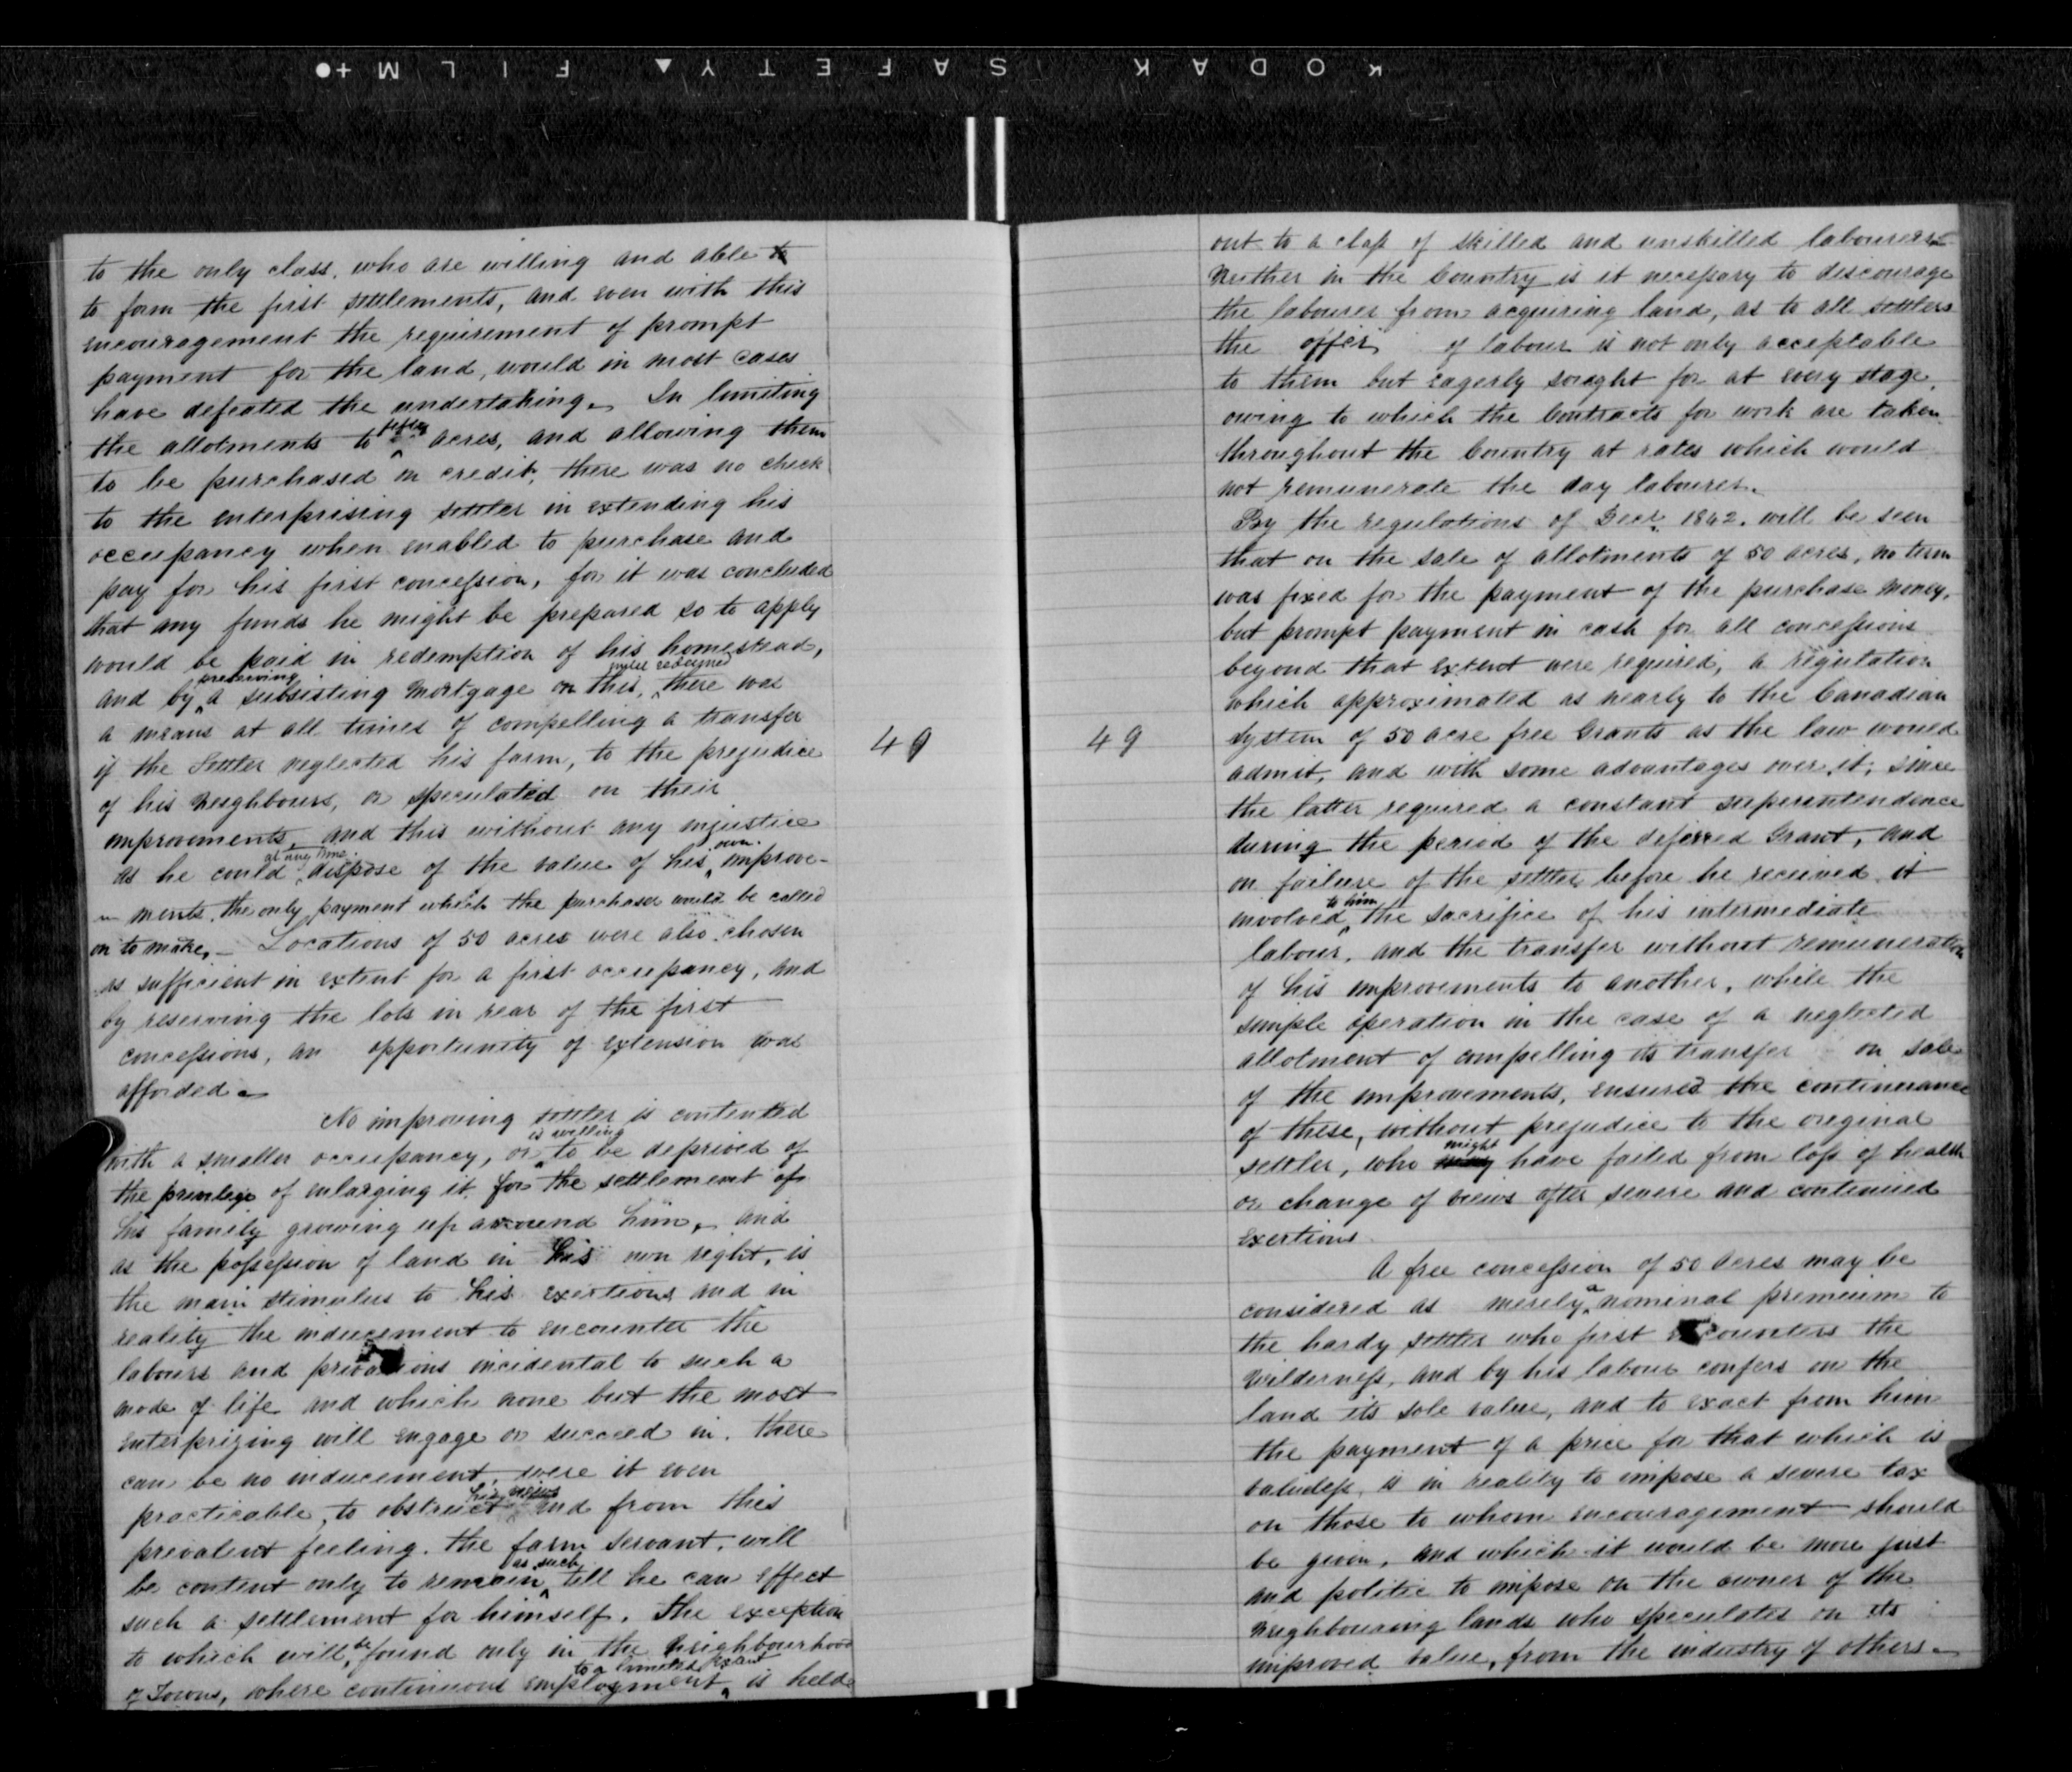 KODAK SAFETY ▲ FILM +●
to the only class, who are willing and able to
to form the first settlements, and even with this
encouragement the requirement of prompt
payment for the land, would in most cases
have defeated the undertaking. In limiting
the allotments to fifty acres, and allowing them
to be purchased on credit, there was no check
to the enterprising settler in extending his
occupancy when enabled to purchase and
pay for his first concession, for it was concluded
that any funds he might be prepared so to apply
would be paid in redemption of his homestead,
and by preserving a subsisting Mortgage on this, until redeemed there was
a means at all times of compelling a transfer
if the Settler neglected his farm, to the prejudice
of his Neighbours, or speculated on their
improvements, and this without any injustice
as he could at any time dispose of the value of his own improve-
ments, the only payment which the purchaser would be called
on to make. - Locations of 50 acres were also chosen
as sufficient in extent for a first occupancy, and
by reserving the lots in rear of the first
concessions, an opportunity of extension was
afforded -
No improving settler is contented
with a smaller occupancy, or is willing to be deprived of
the privilege of enlarging it, for the settlement of
his family growing up around him, and
as the possession of land in his own right, is
the main stimulus to his exertions and in
reality the inducement to encounter the
labours and privations incidental to such a
mode of life and which none but the most
enterprizing will engage or succeed in. there
can be no inducement, were it even
practicable, to obstruct his views and from this
prevalent feeling. the farm Servant, will
be content only to remain as such till he can effect
such a settlement for himself. The exception
to which will be found only in the Neighbourhood
of Towns, where continuous employment to a limited extent is held
49
49
out to a class of skilled and unskilled labourers -
Neither in the Country is it necessary to discourage
the labourer from acquiring land, as to all settlers
the offer of labour is not only acceptable
to them but eagerly sought for at every stage,
owing to which the Contracts for work are taken
throughout the Country at rates which would
not remunerate the day labourer.
By the regulations of Decr 1842. will be seen
that on the sale of allotments of 50 acres, no term
was fixed for the payment of the purchase money,
but prompt payment in cash for all concessions
beyond that extent were required, a regulation
which approximated as nearly to the Canadian
System of 50 acre free Grants as the law would
admit, and with some advantages over it; since
the latter required a constant superintendence
during the period of the deferred Grant, and
on failure of the settler before he received it
involved to him the sacrifice of his intermediate
labour, and the transfer without remuneration
of his improvements to another, while the
simple operation in the case of a neglected
allotment of compelling its transfer on sale
of the improvements, ensured the continuance
of these, without prejudice to the original
settler, who might have failed from loss of health
or change of views after severe and continued
exertions.
A free concession of 50 Acres may be
considered as merely a nominal premium to
the hardy settler who first encounters the
Wilderness, and by his labour confers on the
land its sole value, and to exact from him
the payment of a price for that which is
valueless, is in reality to impose a severe tax
on those to whom encouragement should
be given, and which it would be more just
and politic to impose on the owner of the
Neighbouring lands who speculates on its
improved value, from the industry of others. -